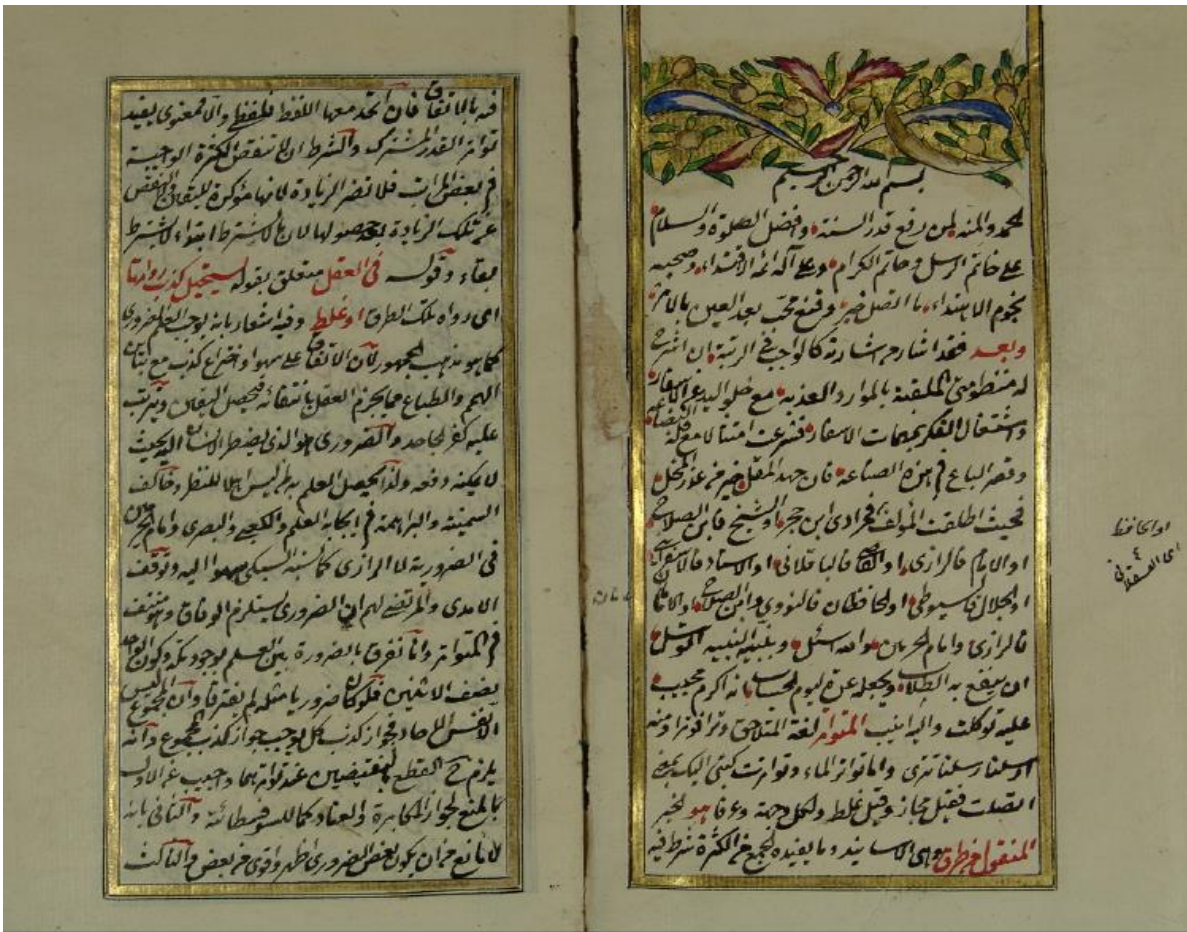 بسم الله الرحمن الرحيم
الحمد والمنة لمن رفع قدر السنة وافضل الصلوة والسلام
على خاتم الرسل وخاتم الكرام وعلى آله ائمة الاقتداء وصحبه
نجوم الاهتداء ما اتصل خبر وقنع محب بعد العين بالاثر
وبعد فقد اشار من اشارته كالواجب في الرتبة ان اشرح
له منظومتي الملقبة بالموارد العذبة مع خلو اليد عن الاسفار
واشتغال الفكر بمهمات الاسفار فشرعت امتثالا مع قلة البضاعة
وقصر الباع في هذه الصناعة فان جهد المقل خير من عذر المخل
فحيث اطلقت المؤلف فمرادي ابن حجر او الشيخ فابن الصلاح
او الامام فالرازي او القاضي فالباقلاني او الاستاد فالاسفرائني
او الجلال فالسيوطي او الحافظان فالنووي وابن الصلاح او الامامان
فالرازي وامام الحرمين والله اسئل وبنبيه النبيه اتوسل
ان ينفع به الطلاب ويجعله عدة ليوم الحساب انه اكرم مجيب
عليه توكلت واليه انيب المتواتر لغة المتلاحق وترا فوترا ومنه
ارسلنا رسلنا تترى واما تواتر الماء وتواترت كتبي اليك بمعنى
اتصلت فقيل مجاز وقيل غلط ولكل وجهة وعرفا هو الخبر
المنقول من طرق وهي الاسانيد وما يفيده الجمع من الكثرة شرط فيه
او الحافظ
اى العسقلاني
فيه بالاتفاق فان اتحد معها اللفظ فلفظي والا فمعنوي يفيد
تواتر القدر المشترك والشرط ان لا تنقص الكثرة الواجبة
في بعض المراتب فلا تضر الزيادة لانها مؤكدة لليقين في النقص
عن تلك الزيادة بعد حصولها لان ما لا يشترط ابتداء لا يشترط
بقاء وقوله في العقل متعلق بقوله يستحيل كذب رواتها
اى رواة تلك الطرق او غلط وفيه اشعار بانه يوجب العلم الضروري
كما هو مذهب الجمهور لان الاتفاق على سهو او اختراع كذب مع تباين
الهمم والطباع مما يجزم العقل بانتفائه فيحصل اليقين ويترتب
عليه كفر الجاحد والضروري هو الذي يضطر الانسان اليه بحيث
لا يمكنه دفعه ولذا يحصل العلم به لمن ليس اهلا للنظر وخالف
السمنية والبراهمة في ايجابه العلم والكعبي والبصري وامام الحرمين
في الضرورية لا الرازي كما نسبه السبكي سهوا اليه وتوقف
الامدي والمرتضى لهم ان الضروري يستلزم الوفاق وهو منتف
في المتواتر وانا نفرق بالضرورة بين العلم بوجود مكة وكون الواحد
نصف الاثنين فلو كان ضروريا مثله لم يفترقا وان المجموع ليس
الا نفس الاحاد فجواز كذب كل يوجب جواز كذب المجموع وانه
يلزم القطع بالنقيضين عند تواترهما واجيب عن الاول
بالمنع لجواز المكابرة والعناد كما للسوفسطائية والثاني بانه
لا مانع من ان يكون بعض الضروري اظهر واقوى من بعض والثالث